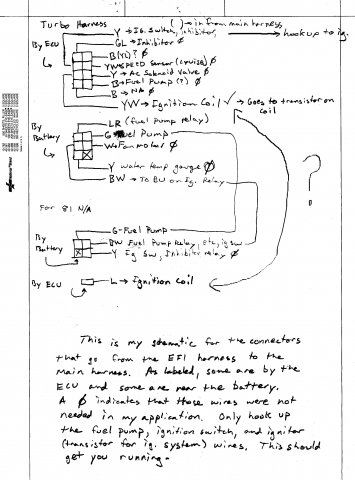 Turbo Harness ( ) → in from main harness
Y → Ig. Switch, Inhibitor, → hook up to ig.
GL → Inhibitor Ø
By ECU
B(Yi)? Ø
YW → SPEED Sensor (cruise) Ø
Y → AC Solenoid Valve Ø
B → Fuel Pump (?) Ø
B → N/A Ø
YW → Ignition Coil ✓ → Goes to transistor on
coil
LR (fuel pump relay)
By
Battery
G → Fuel Pump
W → Fan motor Ø
?
Y water temp gauge Ø
BW → To BW on Ig. Relay
For 81 N/A
G - Fuel Pump
By
Battery
BW Fuel Pump Relay, etc, ig sw
Y Ig Sw, Inhibitor relay Ø
By ECU
L → Ignition Coil
This is my schematic for the connectors
that go from the EFI harness to the
main harness. As labeled, some are by the
ECU and some are near the battery.
A Ø indicates that those wires were not
needed in my application. Only hook up
the fuel pump, ignition switch, and ignitor
(transistor for ig. system) wires. This should
get you running.